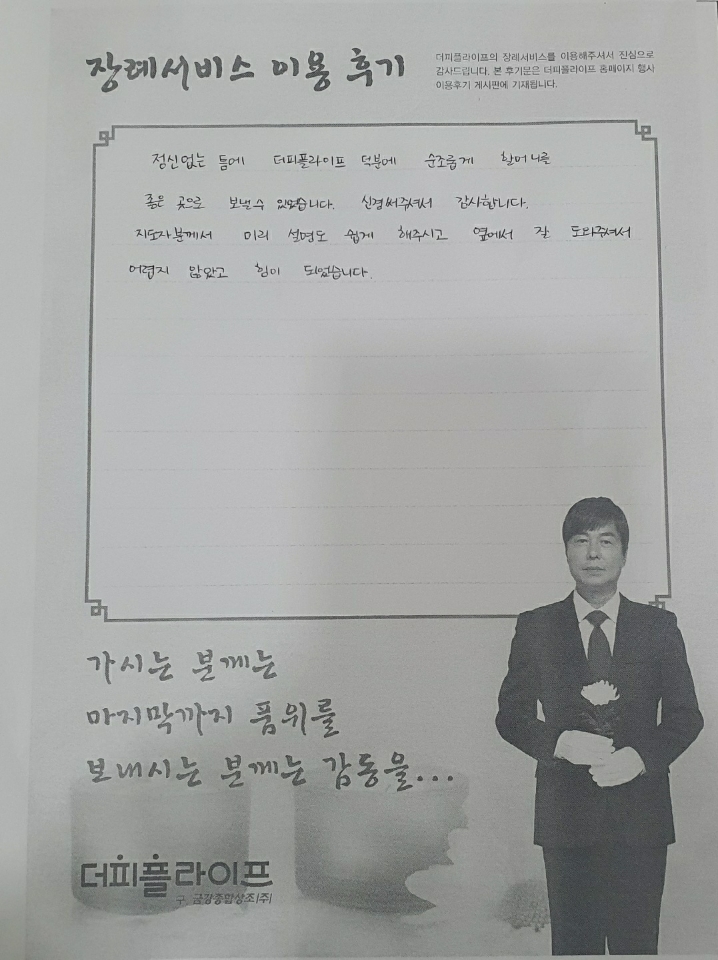 장례서비스 이용 후기
더피플라이프의 장례서비스를 이용해주셔서 진심으로
감사드립니다. 본 후기문은 더피플라이프 홈페이지 행사
이용후기 게시판에 기재됩니다.
정신없는 틈에 더피플라이프 덕분에 순조롭게 할머니를
좋은 곳으로 보낼수 있었습니다. 신경써주셔서 감사합니다.
지도자분께서 미리 설명도 쉽게 해주시고 옆에서 잘 도와주셔서
어렵지 않았고 힘이 되었습니다.
가시는 분께는
마지막까지 품위를
보내시는 분께는 감동을...
더피플라이프
구 금강종합상조(주)